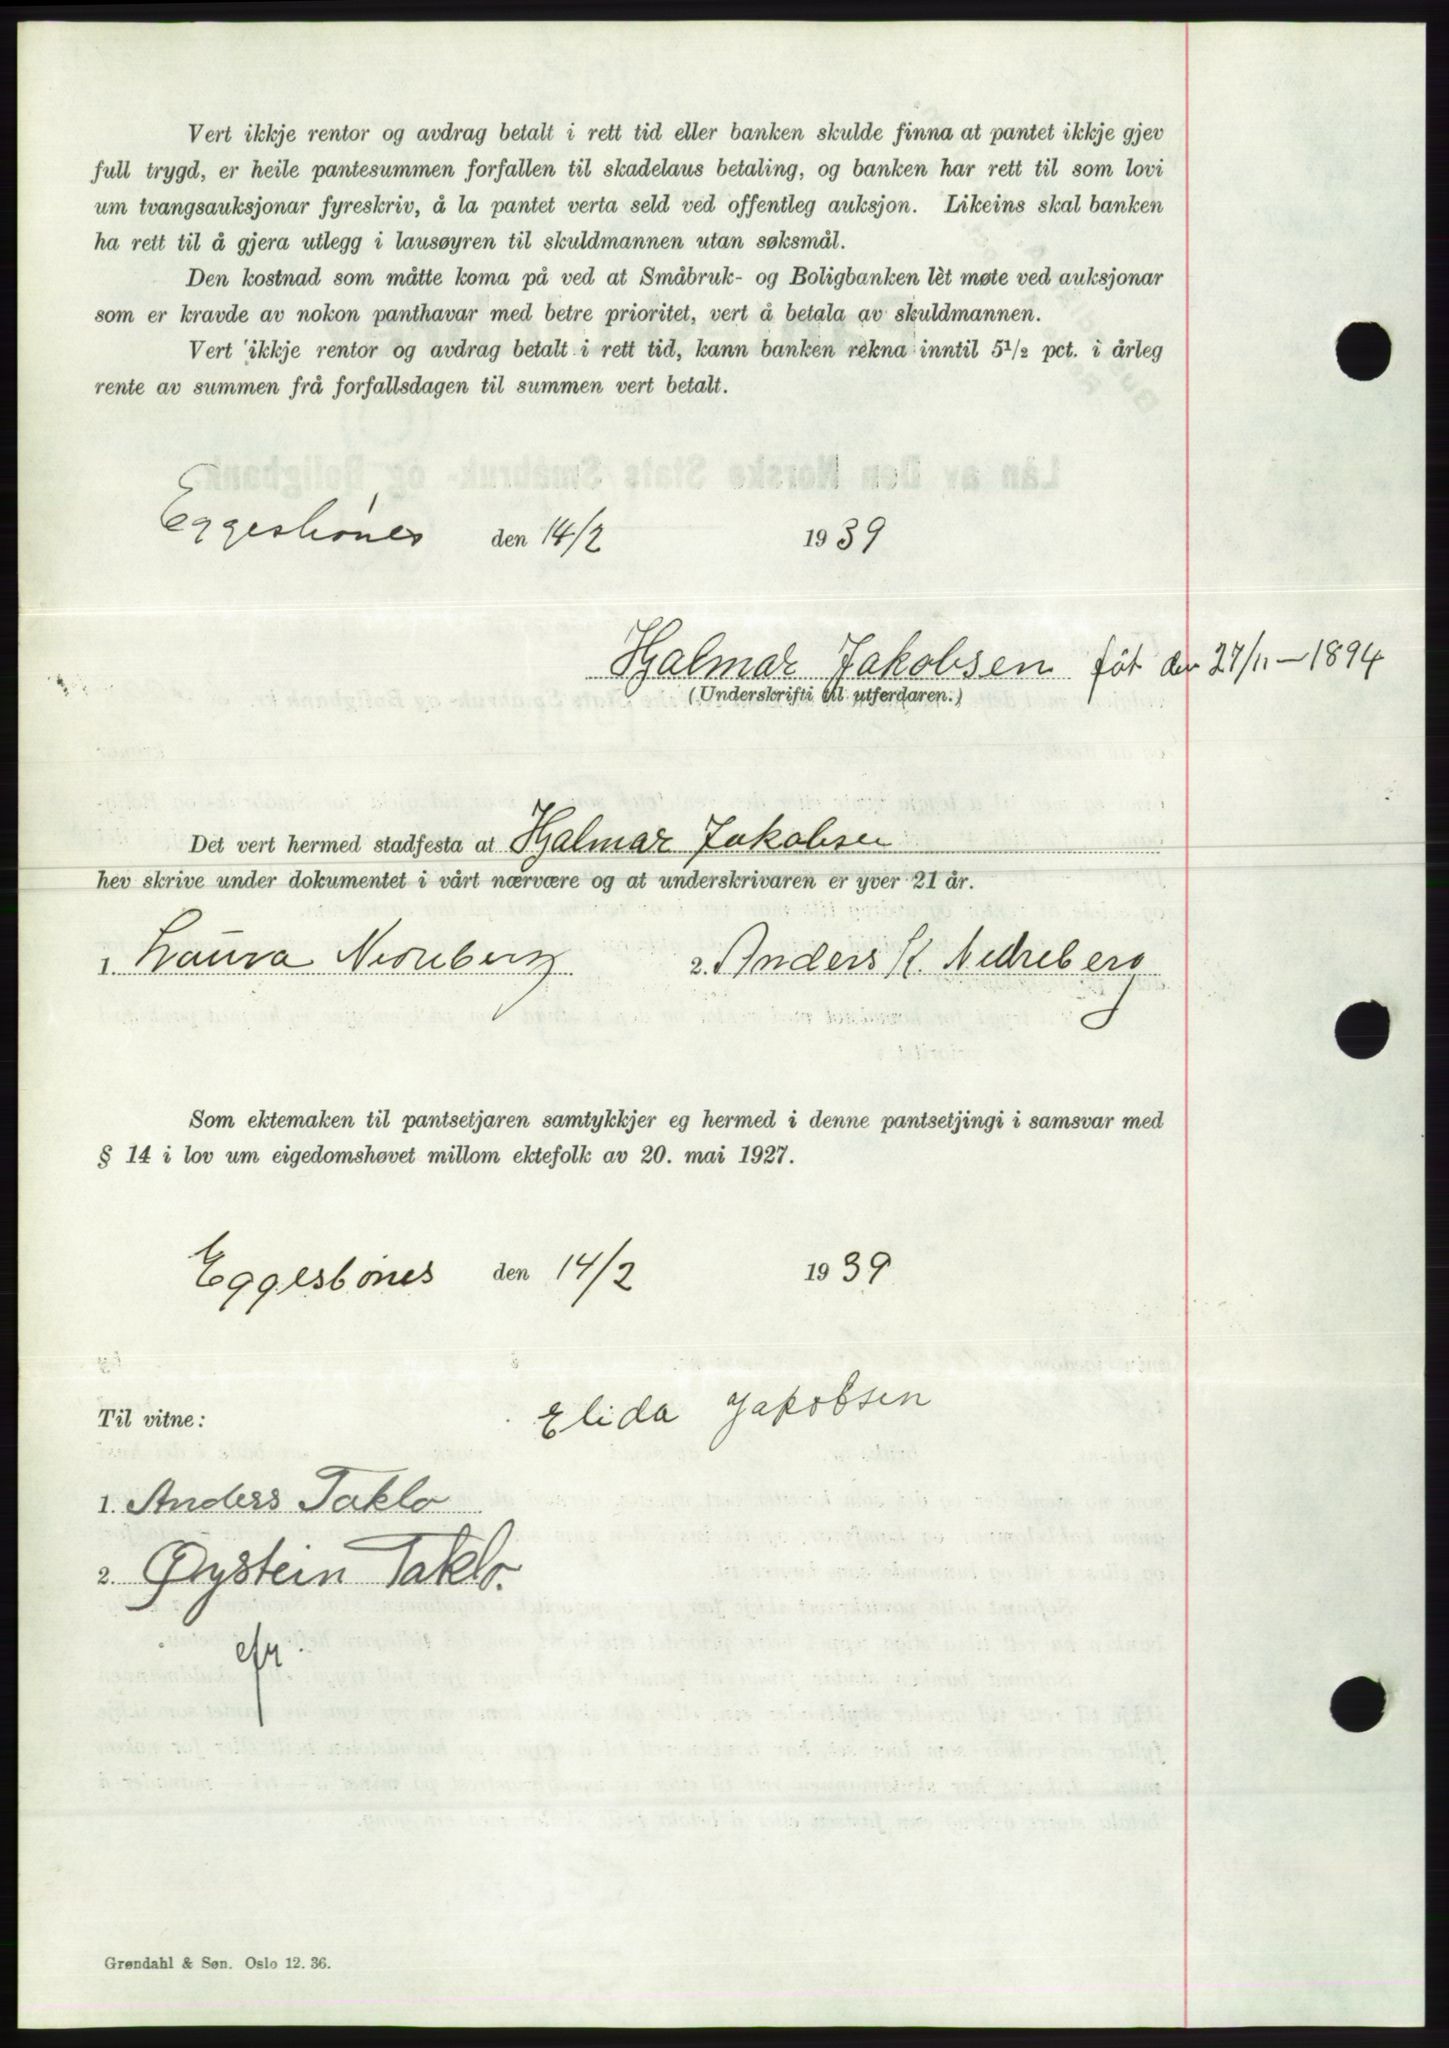 Vert ikkje rentor og avdrag betalt i rett tid eller banken skulde finna at pantet ikkje gjev
full trygd, er heile pantesummen forfallen til skadelaus betaling, og banken har rett til som lovi
um tvangsauksjonar fyreskriv, å la pantet verta seld ved offentleg auksjon. Likeins skal banken
ha rett til å gjera utlegg i lausøyren til skuldmannen utan søksmål.
Den kostnad som måtte koma på ved at Småbruk- og Boligbanken lèt møte ved auksjonar
som er kravde av nokon panthavar med betre prioritet, vert å betala av skuldmannen.
Vert ikkje rentor og avdrag betalt i rett tid, kann banken rekna inntil 5½ pct. i årleg
rente av summen frå forfallsdagen til summen vert betalt.
Eggesbönes den 14/2 1939
Hjalmar Jakobsen föt den 27/11-1894
(Underskrifti til utferdaren.)
Det vert hermed stadfesta at Hjalmar Jakobsen
hev skrive under dokumentet i vårt nærvære og at underskrivaren er yver 21 år.
1. Laura Nedreberg 2. Anders K. Nedreberg
Som ektemaken til pantsetjaren samtykkjer eg hermed i denne pantsetjingi i samsvar med
§ 14 i lov um eigedomshøvet millom ektefolk av 20. mai 1927.
Eggesbönes den 14/2 1939
Til vitne: Elida Jakobsen
1. Anders Taklo
2. Øystein Taklo.
Grøndahl & Søn. Oslo 12. 36.